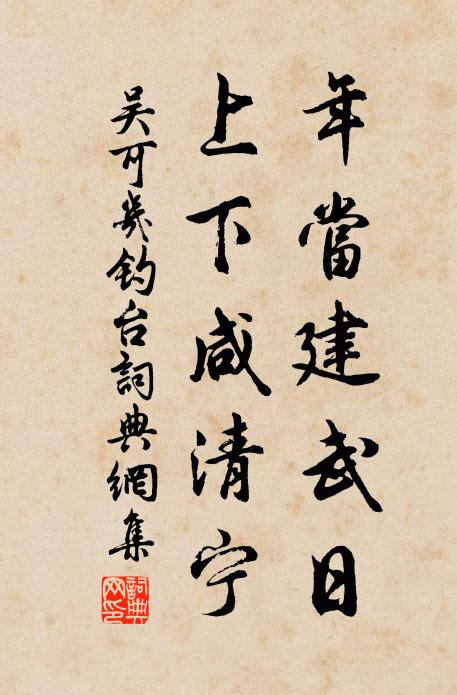 年當建武日
上下咸清宁
吴可幾钓台詞典網集
詞典
网印